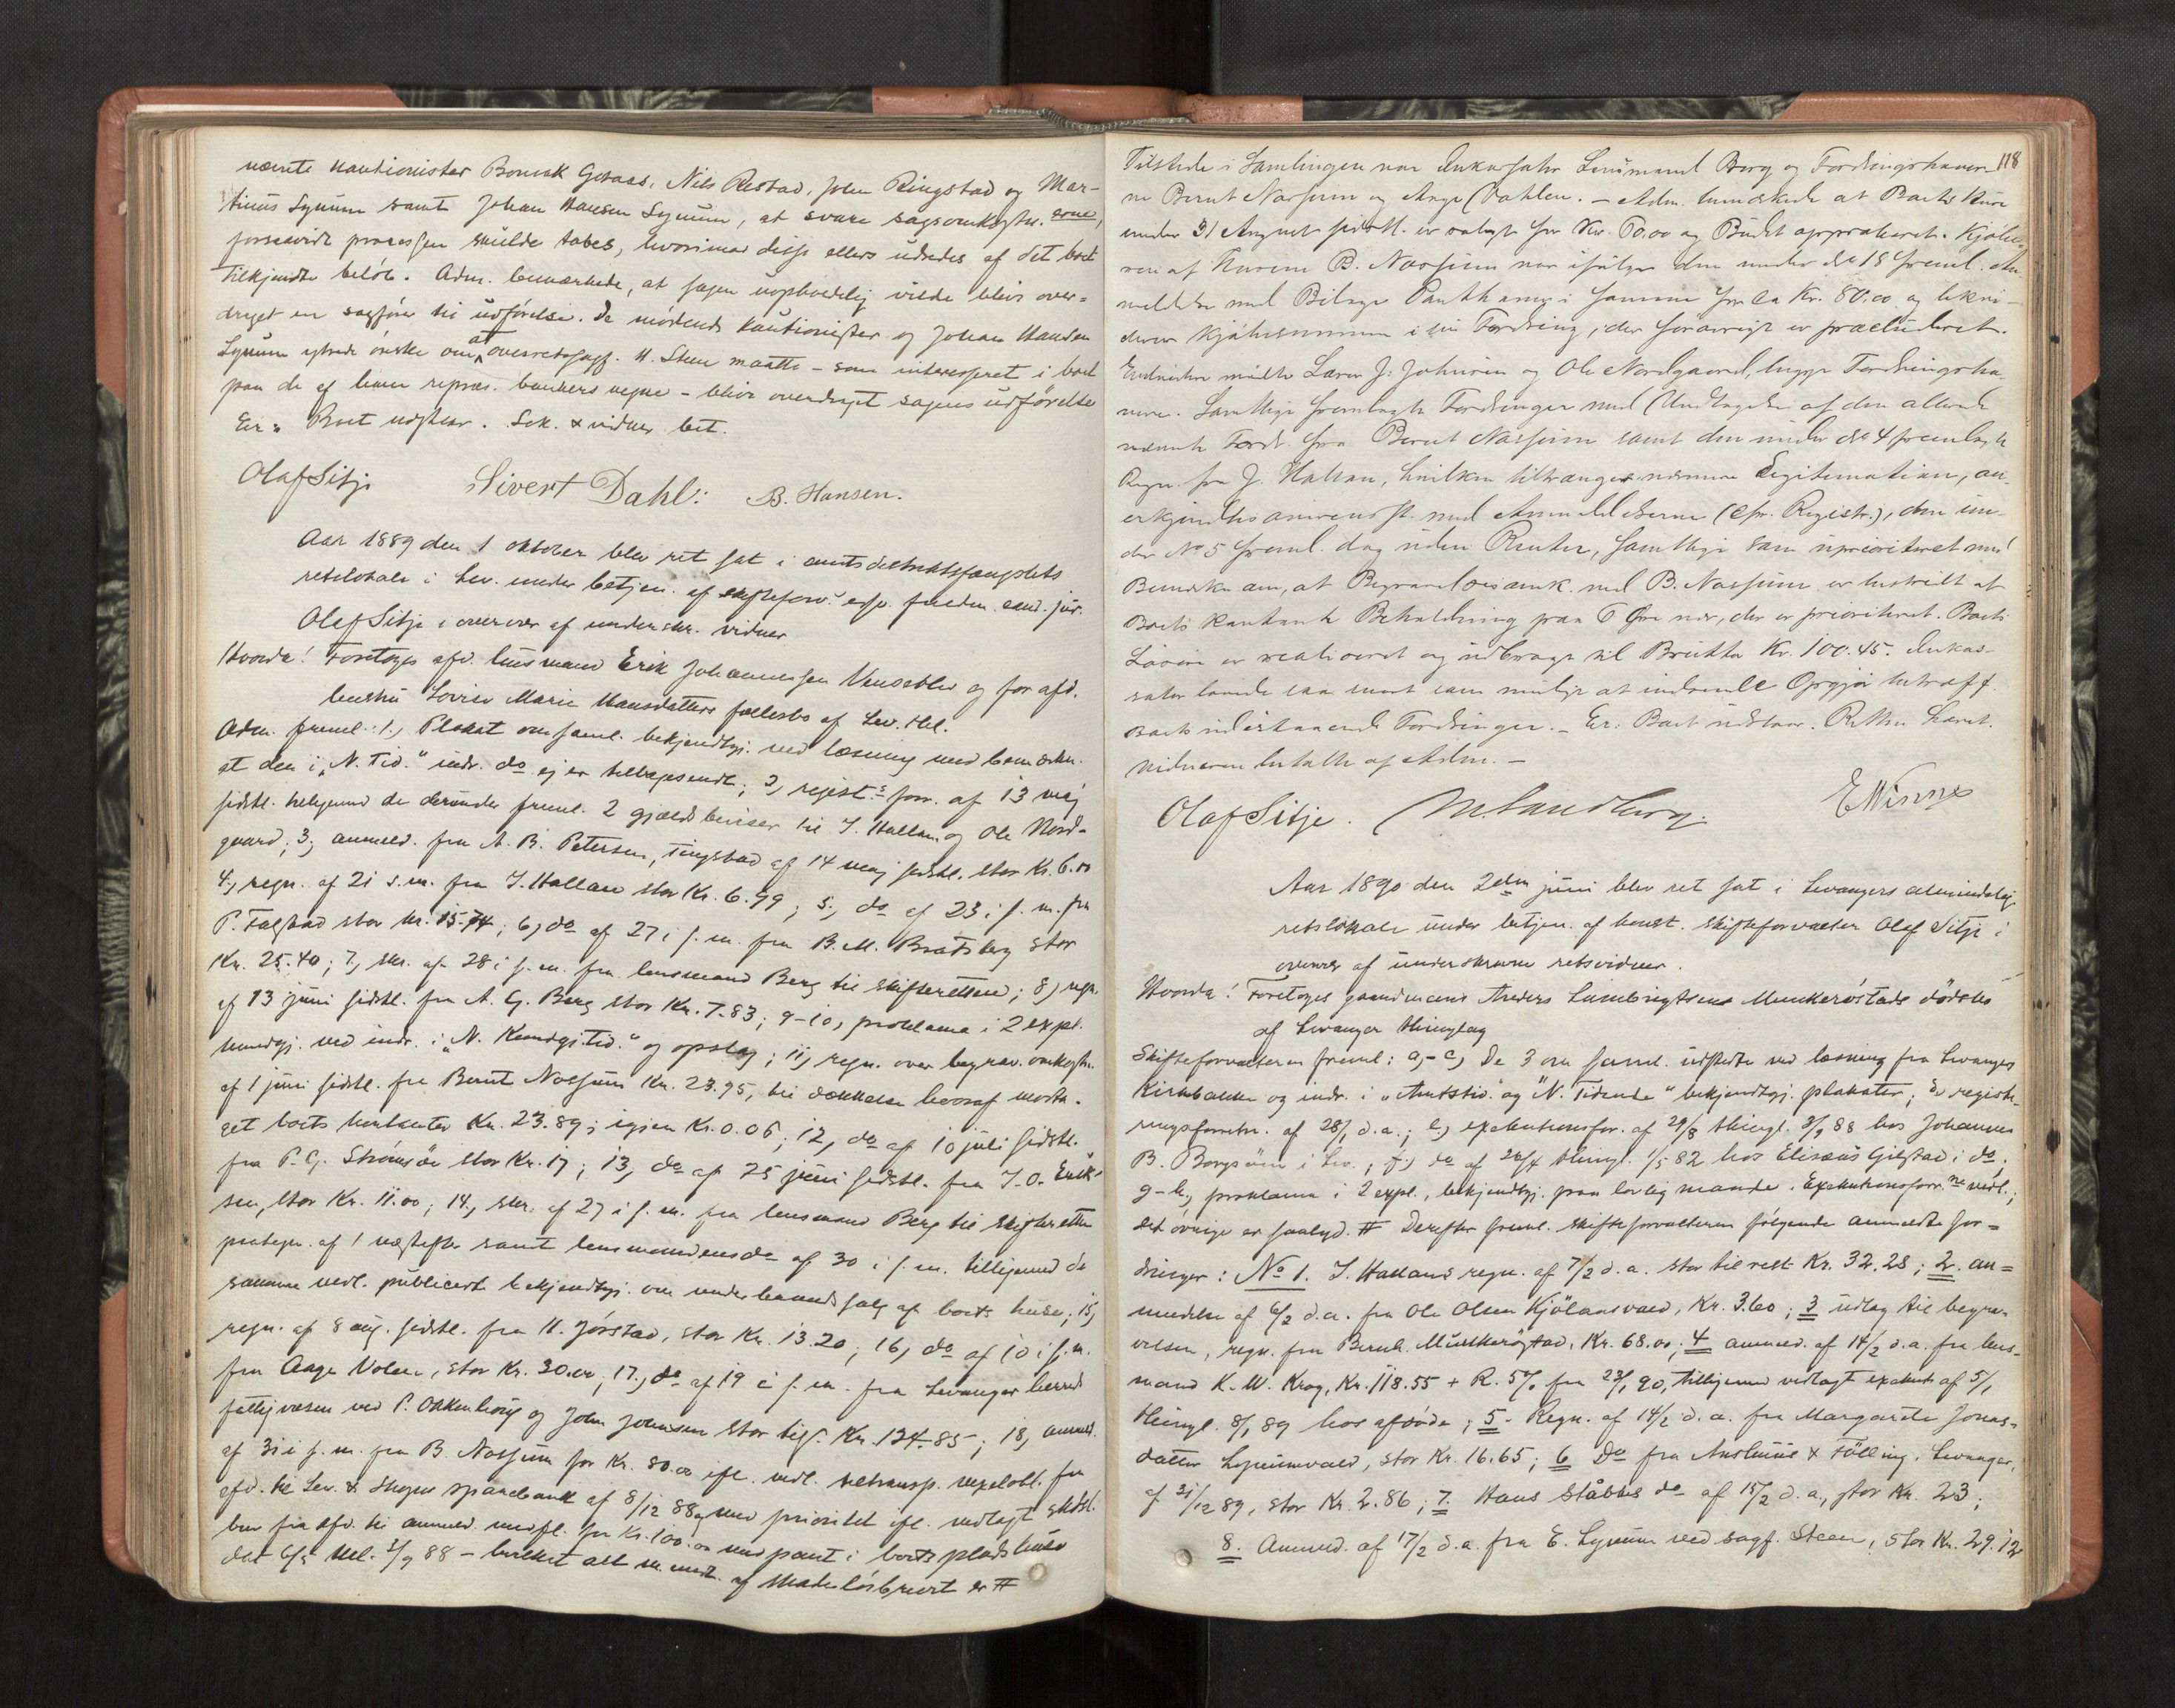 nævnte kautionister Bonsak Gotaas, Nils Restad, John Ringstad og Mar-
tinus Lynum samt Johan Hansen Lynum, at svare sagsomkostn.erne,
forsaavidt processen skulde tabes, hvorimod disse ellers udredes af det boet
tilkjendte beløb. Adm. bemærkede, at sagen uopholdelig vilde blive over-
draget en sagfører til udførelse. De mødende kautionister og Johan Hansen
Lynum ytrede ønske om at overretssagf. H. Steen maatte – som interesseret i boet
paa de af ham repræs. bankers vegne – blive overdraget sagens udførelse
Er: Boet udstaar. Sek. & vidner bet.
Olaf Sitje Sivert Dahl: B. Hansen.
Aar 1889 den 1 oktober blev ret sat i amtsdistriktsfængslets
retslokale i Lev. under betjen. af skifteforv.s fuldm. cand. jur.
Olaf Sitje i overvær af underskr. vidner
Hvorda! Foretoges afd. husmand Erik Johannessen Venseblev og før afd.
hustru Lovise Marie Hansdatters fællesbo af Lev. Hl.
Adm. freml.: 1, Plakat om saml. bekjendtgj. ved læsning med bemærkn.
at den i "N. Tid." indr. do ej er tilbagesendt; 2, regist.s forr. af 13 maj
sidstl. tilligemed de derunder freml. 2 gjældsbeviser til J. Hallan og Ole Nord-
gaard; 3, anmeld. fra A. B. Petersen, Tingstad af 14 maj sidstl. stor Kr. 6.00
4, regn. af 21 s.m. fra J. Hallan stor Kr. 6.99; 5, do af 23 i s. m. fra
P. Falstad stor Kr. 15.74; 6, do af 27 i s. m. fra B. M. Bratsberg stor
Kr. 25.40; 7, skr. af 28 i s. m. fra lensmand Berg til skifteretten; 8, regn.
af 13 juni sidstl. fra A. G. Berg stor Kr. 7.83; 9-10, proklama i 2 expl.
kundgj. ved indr. i "N. Kundgj.tid." og opslag; 11, regn. over begrav. omkostn.
af 1 juni sidstl. fra Bernt Nossum Kr. 23.95, til dækkelse hvoraf modta-
get boets kontanter Kr. 23.89; igjen Kr. 0.06; 12, do af 10 juli sidstl.
fra P. G. Strømsør stor Kr. 17; 13, do af 25 juni sidstl. fra J. O. Erik-
sen, stor Kr. 11.00; 14, skr. af 27 i s. m. fra lensmand Berg til skifteretten
paategn. af 1 næstefter samt lensmandens do af 30 i s. m. tilligemed de
samme vedl. publicerte bekjendtgj. om underhaandssalg af boets huse; 15,
regn. af 8 aug. sidstl. fra H. Jørstad, stor Kr. 13.20; 16, do af 10 i s. m.
fra Aage Volen, stor Kr. 30.00; 17, do af 19 i s. m. fra Levanger herreds
fattigvæsen ved P. Okkenhaug og John Johnsen stor tils. Kr. 134.85; 18, anmeld.
af 31 i s. m. fra B. Nossum for Kr. 80.00 ifl. vedl. retransp. vexelobl. fra
afd. til Lev. & Skogns sparebank af 8/12 88, med prioritet ifl. vedlagt skadesl.
brev fra afd. til anmeld. for Kr. 100.00 med pant i boets pladshuse
dat 6/5 thl. 3/9 88 – hvilket alt m. undt. af skadesløsbrevet er #
118
Tilstede i Samlingen var Inkassator Lensmand Berg og Fordringshaver
ne Bernt Nossum og Aage Vohlen. – Adm. bemærkede at Boets Huse
under 31 August sidstl. er solgt for Kr. 60.00 og Budet approberet. Kjøbe-
ren af Husene B. Nossum har ifølge den under No 18 freml. An
meldelse med Bilage Panthæng i samme for ca Kr. 80.00 og likvi-
derer Kjøbesummen i sin Fordring, der forøvrigt er præcluderet.
Endvidere mødte Lærer J: Johnsen og Ole Nordgaard, begge Fordringsha-
vere. Samtlige fremlagte Fordringer med Undtagelse af den allerede
nævnte Fordr. fra Bernt Nossum samt den under No 4 fremlagte
Regn fra J. Hallan, hvilken tiltrænger nærmere Legitimation, an-
erkjendtes overensst. med Anmeldelserne (cfr. Registr.), den un-
der No 5 freml. dog uden Renter, samtlige som uprioriteret med
Bemærkn om, at Begravelsesomk. ved B. Nossum er bestridt af
Boets kontante Beholdning paa 6 Øre nær, der er prioriteret. Boets
Løsøre er realiseret og udbragt til Brutto Kr. 100.45. Inkas-
sator lovede saa snart som muligt at indsende Opgjør betræff.
Boets udestaaende Fordringer. – Er: Boet udstaar. Retten hævet.
Vidnerne betalte af Adm. –
Olaf Sitje. M. Sandberg. E Winge
Aar 1890 den 2den juni blev ret sat i Levangers almindelig
retslokale under betjen. af const. skifteforvalter Olaf Sitje i
overvær af underskrevne retsvidner.
Hvorda! Foretoges gaardmand Anders Lambrigtsens Munkerøstads dødsbo
af Levanger thinglag
Skifteforvalteren freml: a-c, De 3 om saml. udstedte ved læsning fra Levanger
Kirkebakke og indr. i "Amtstid." og "N. Tidende" bekjendtgj. plakater; d, registe-
ringsforretn. af 28/1 d. a.; e, exekutionsfor. af 29/8 thingl. 3/9 88 hos Johannes
B. Borgsøen i Lev.; f, do af 26/4 thingl. 1/5 82 hos Elisæus Gilstad i do;
g-h, proklama i 2 expl., bekjendtgj. paa lovlig maade. Exekutionsforr.ne vedl.;
det øvrige er saalyd. # Derefter freml. skifteforvalteren følgende anmeldte for-
dringer: No 1. J. Hallans regn. af 7/2 d. a. stor til rest Kr. 32.28; 2. an-
meldelse af 6/2 d. a. fra Ole Olsen Kjølansvald, Kr. 3.60; 3 udlæg til begra-
velsen, regn. fra Bernh. Munkerøstad, Kr. 68.00; 4 anmeld. af 14/2 d. a. fra lens-
mand K. W. Krog, Kr. 118.55 + R. 5% fra 23/1 90, tilligemed vedlagt exekut. af 5/1
thingl. 8/1 89 hos afdøde; 5. Regn. af 14/2 d. a. fra Margareta Jonas-
datter Lynumvald, stor Kr. 16.65; 6 Do fra Anshuus & Følling. Levanger,
af 31/12 89, stor Kr. 2.86; 7. Hans Ståbbis do af 15/2 d. a., stor Kr. 23;
8. Anmeld. af 17/2 d. a. fra E. Lynum ved sagf. Steen, stor Kr. 29.12